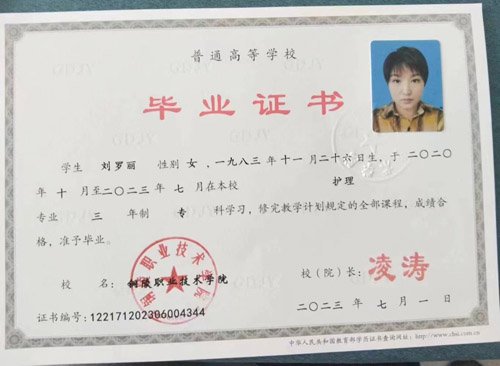 普通高等学校
毕业证书
学生 刘罗丽 性别 女 ,一九八三 年 十一 月 二十六 日生,于 二〇二〇
年 十 月至 二〇二三 年 七 月在本校 护理
专业 三 年制 专 科学习,修完教学计划规定的全部课程,成绩合
格,准予毕业。
校 名: 铜陵职业技术学院 校(院)长: 凌涛
二〇二三 年 七 月 一 日
证书编号: 122171202306004344
中华人民共和国教育部学历证书查询网址: http://www.chsi.com.cn